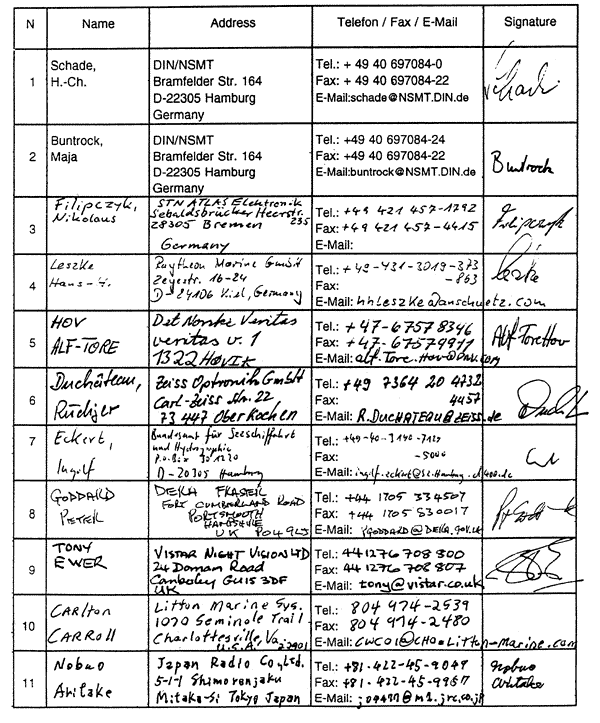 N Name Address Telefon / Fax / E-Mail Signature
1 Schade, H.-Ch.
DIN/NSMT
Bramfelder Str. 164
D-22305 Hamburg
Germany
Tel.: + 49 40 697084-0
Fax: + 49 40 697084-22
E-Mail:schade@NSMT.DIN.de
2 Buntrock, Maja
DIN/NSMT
Bramfelder Str. 164
D-22305 Hamburg
Germany
Tel.: +49 40 697084-24
Fax: +49 40 697084-22
E-Mail:buntrock@NSMT.DIN.de
Buntrock
3 Filipczyk, Nikolaus
STN ATLAS Elektronik
Sebaldsbrücker Heerstr. 235
28305 Bremen
Germany
Tel.: +49 421 457-1792
Fax: +49 421 457-4415
E-Mail:
Filipczyk
4 Leszke
Hans-H.
Raytheon Marine GmbH
Zeyestr. 16-24
D-24106 Kiel, Germany
Tel.: +49-431-3019-373
Fax: -863
E-Mail: hhLeszke@anschuetz.com
Leszke
5 HOV
ALF-TORE
Det Norske Veritas
Veritas v. 1
1322 HØVIK
Tel.: +47-67578346
Fax: +47-67579911
E-Mail: alf.Tore.Hov@dnv.com
Alf Tore Hov
6 Duchâteau,
Rüdiger
Zeiss Optronik GmbH
Carl-Zeiss Str. 22
73 447 Oberkochen
Tel.: +49 7364 20 4732
Fax: 4457
E-Mail: R.DUCHATEAU@ZEISS.de
7 Eckert,
Ingolf
Bundesamt für Seeschiffahrt
und Hydrographie
P.O. Box 301220
D-20305 Hamburg
Tel.: +49-40-3190-7127
Fax: -5000
E-Mail:
8 GODDARD
PETER
DERA FRASER
FORT CUMBERLAND ROAD
PORTSMOUTH
HAMPSHIRE
UK PO4 9LJ
Tel.: +44 1705 334507
Fax: +44 1705 330017
E-Mail: PGODDARD@DERA.gov.uk
9 TONY
EWER
VISTAR NIGHT VISION LTD
24 Doman Road
Camberley GU15 3DF
UK
Tel.: 441276 708 800
Fax: 441276 708 807
E-Mail: tony@vistar.co.uk
10 CARLTON
CARROLL
Litton Marine Sys.
1070 Seminole Trail
Charlottesville, Va.
U.S.A. 22901
Tel.: 804 974-2539
Fax: 804 974-2480
E-Mail: CWCO1@CHO.Litton-Marine.com
11 Nobuo
Aritake
Japan Radio Co., Ltd.
5-1-1 Shimorenjaku
Mitaka-Si Tokyo Japan
Tel.: +81-422-45-9049
Fax: +81-422-45-9957
E-Mail:
Nobuo
Aritake